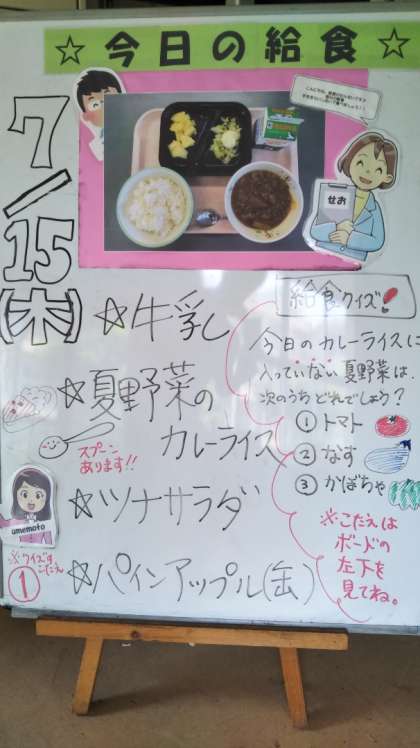 ☆今日の給食☆
7/15(木)
せお
給食クイズ!
今日のカレーライスに
入っていない夏野菜は、
次のうちどれでしょう?
① トマト
② なす
③ かぼちゃ
※こたえは
ボードの
左下を
見てね。
☆牛乳
☆夏野菜の
カレーライス
スプーン
あります!!
☆ツナサラダ
☆パインアップル(缶)
umemoto
※クイズのこたえ
①